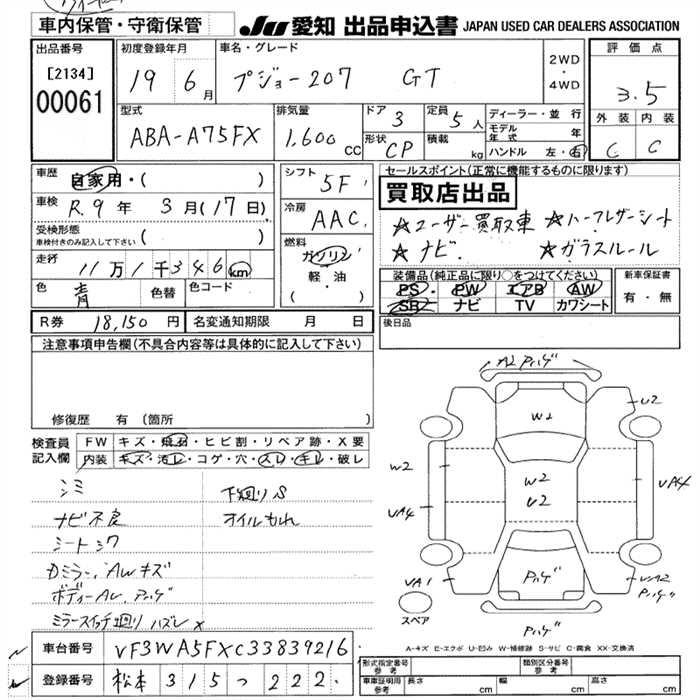 車内保管・守衛保管 JU 愛知 出品申込書 JAPAN USED CAR DEALERS ASSOCIATION
出品番号 [2134] 00061
初度登録年月 19 6月
車名・グレード プジョー207 GT
2WD・4WD
評価点 3.5
外装 内装
C C
型式 ABA-A75FX
排気量 1,600 CC
ドア 3
形状 CP
定員 5人
積載 kg
ディーラー・並行
モデル年式 年
ハンドル 左・右
車歴 自家用・( )
車検 R.9年 3月(17日)
受検形態 車検付きのみ記入して下さい ( )
走行 11万1千346km
色 青 色替 色コード
シフト 5F
冷房 AAC
燃料 ガソリン 軽・油 ( )
セールスポイント(正常に機能するものに限ります)
買取店出品
☆ユーザー買取車 ☆ハーフレザーシート
☆ナビ ☆ガラスルール
装備品(純正品に限り○をつけてください) 新車保証書
PS・PW エアB AW 有・無
SR ナビ TV カワシート
後日品
R券 18,150円 名変通知期限 月 日
注意事項申告欄(不具合内容等は具体的に記入して下さい)
修復歴 有(箇所 )
検査員記入欄
FW キズ・飛石・ヒビ割・リペア跡・X要
内装 キズ・汚レ・コゲ・穴・スレ・キレ・破レ
シミ 下廻りS
ナビ不良 オイルもれ
シートシワ
Dミラー、AWキズ
ボディーAU、ハゲ
ミラースイッチ廻りハズレX
A2 ハゲ
W2
U2
W2
W2
U2
UA4
UA4
UA1
ハゲ
UA2
ハゲ
ハゲ
スペア
A-キズ E-エクボ U-凹み W-補修跡 S-サビ C-腐食 XX-交換済
車台番号 VF3WA5FXC33839216
登録番号 松本 315 つ 222
形式指定番号 参考 類別区分番号 参考
車車証明用 参考 長さ cm 幅 cm 高さ cm